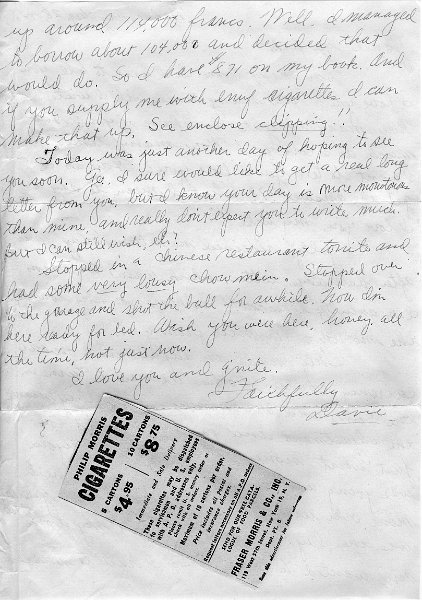 up around 114,000 francs. Well, I managed
to borrow about 104,000 and decided that
would do. So I have $871 on my book. And
if you supply me with enuf cigarettes I can
make that up. See enclose clipping!!
Today was just another day of hoping to see
you soon. Yes, I sure would like to get a real long
letter from you, but I know your day is more monotonous
than mine, and really don't expect you to write much.
But I can still wish, eh?
Stopped in a chinese restaurant tonite and
had some very lousy chow mein. Stopped over
by the garage and shot the bull for awhile. Now I'm
here ready for bed. Wish you were here, honey, all
the time, not just now.
I love you and gnite.
Faithfully
Davie
PHILIP MORRIS
CIGARETTES
5 CARTONS 10 CARTONS
$4.95 $8.75
Immediate and Safe Delivery
These cigarettes may be dispatched
to servicemen and U.S. employees
with A. P. O. addresses only.
Maximum of 10 cartons per order.
Price includes all Postal and
insurance charges.
SEND FOR OUR FREE CATA-
LOGUE OF FOOD PARCELS.
FRASER MORRIS & CO., INC.
119 West 57th Street, New York 19, N. Y.
Dept. PX 8